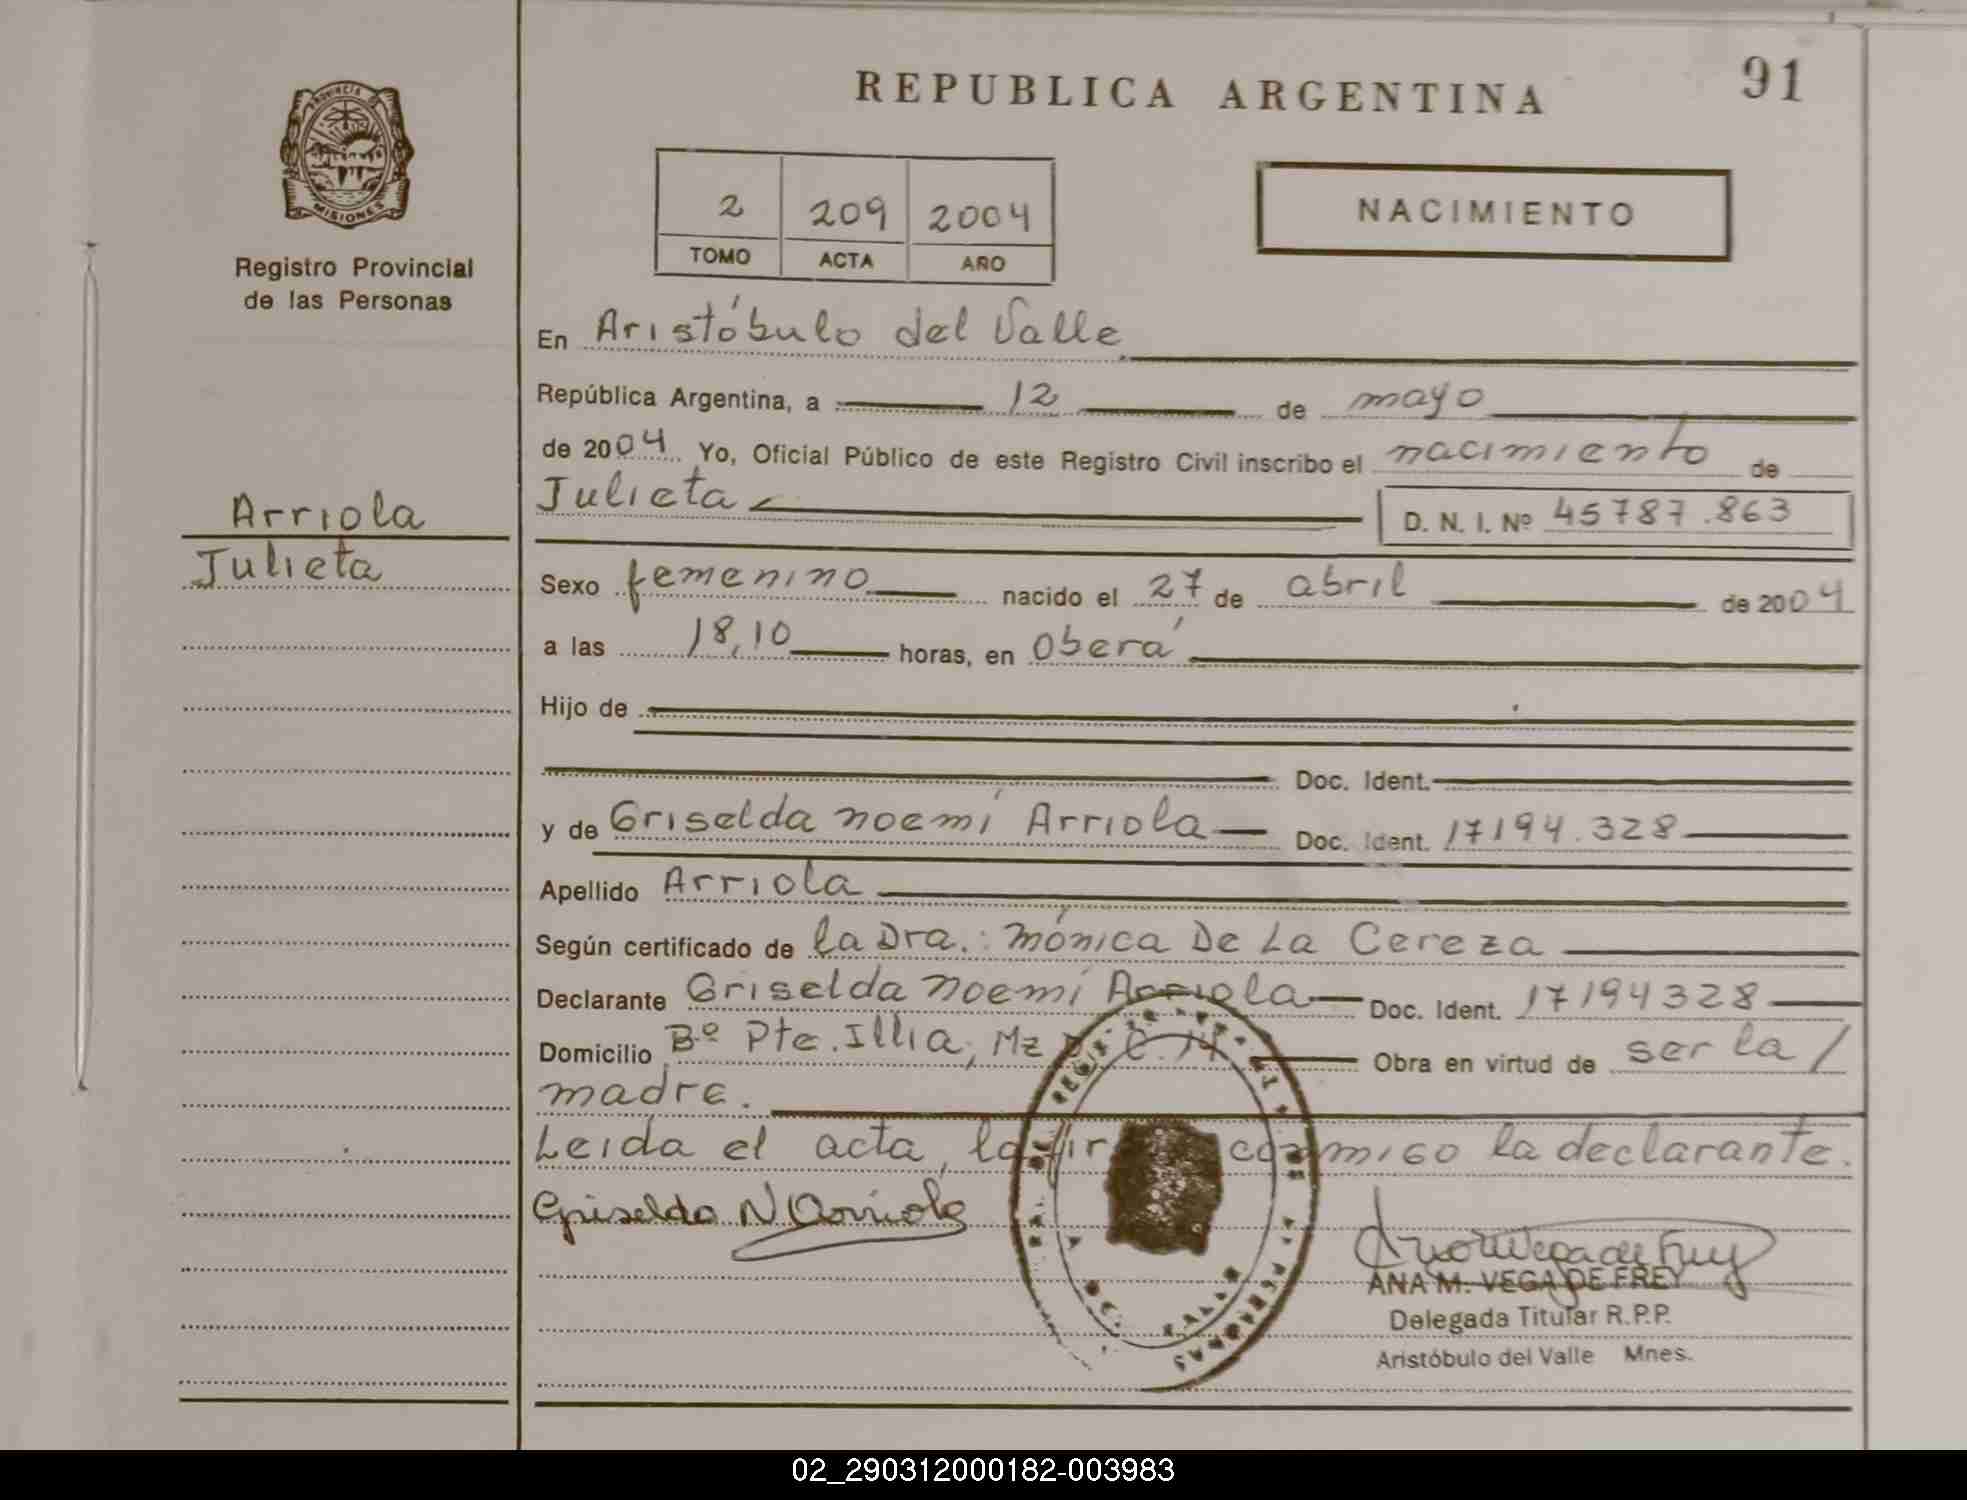 REPUBLICA ARGENTINA
91
PROVINCIA DE
MISIONES
Registro Provincial
de las Personas
2 209 2004
TOMO ACTA AÑO
NACIMIENTO
En Aristóbulo del Valle
República Argentina, a 12 de mayo
de 2004 Yo, Oficial Público de este Registro Civil inscribo el nacimiento de
Julieta D. N. I. Nº 45787.863
Arriola
Julieta
Sexo femenino nacido el 27 de abril de 2004
a las 18,10 horas, en Oberá
Hijo de
Doc. Ident.
y de Griselda Noemí Arriola Doc. Ident. 17194.328
Apellido Arriola
Según certificado de la Dra.: Mónica De La Cereza
Declarante Griselda Noemí Arriola Doc. Ident. 17194328
Domicilio Bº Pte. Illia, Mz Obra en virtud de ser la /
madre.
Leída el acta, la conmigo la declarante.
Griselda N Arriola
ANA M. VEGA DE FREY
Delegada Titular R.P.P.
Aristóbulo del Valle Mnes.
02_290312000182-003983